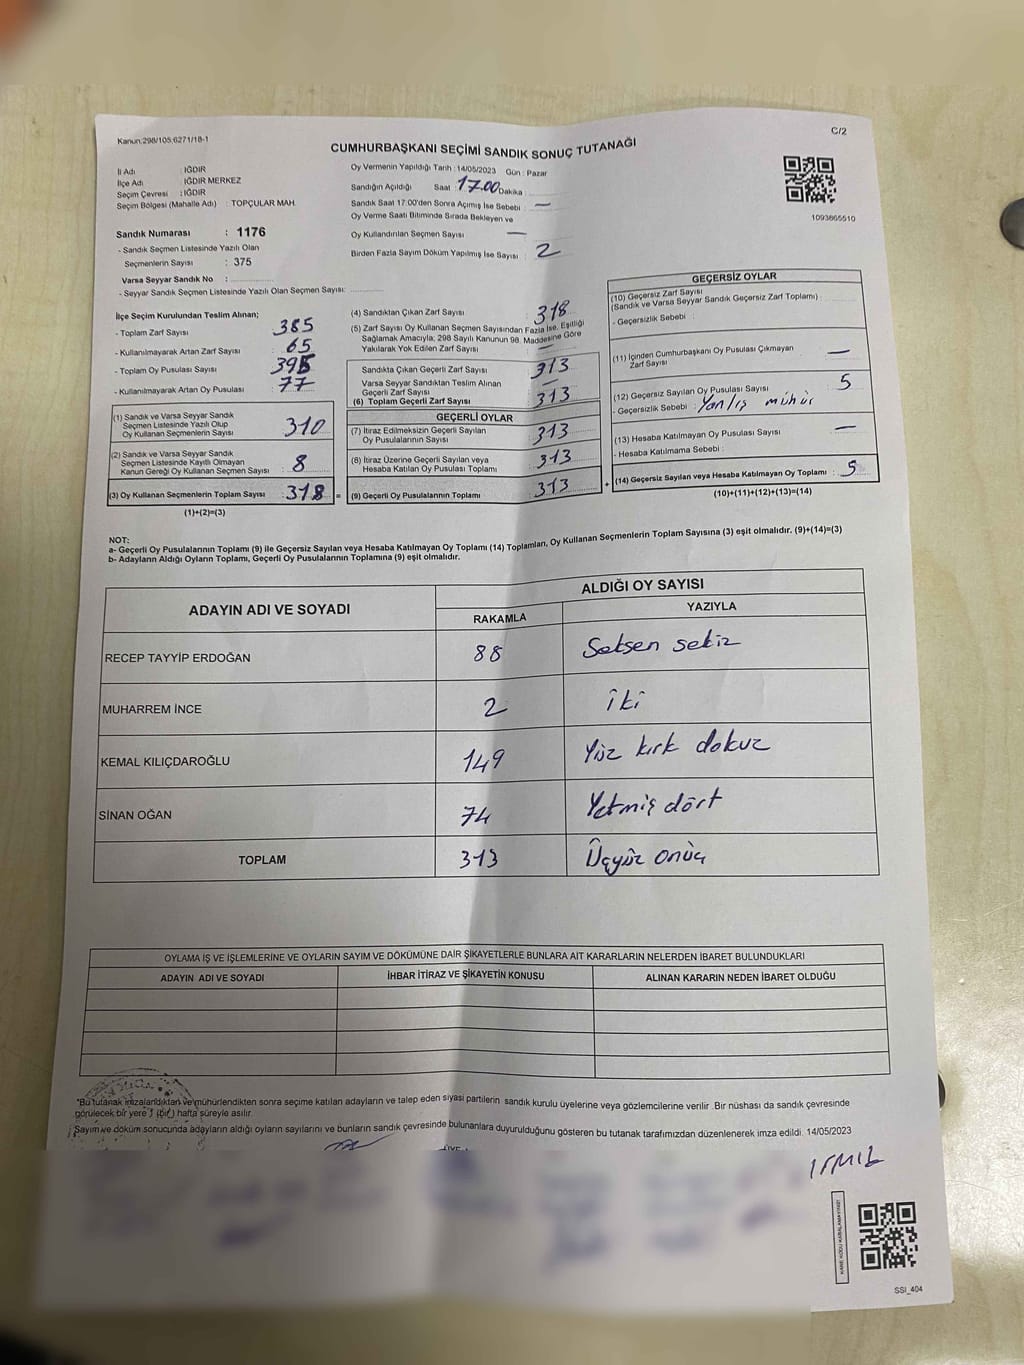 Kanun:298/105;6271/18-1
C/2
CUMHURBAŞKANI SEÇİMİ SANDIK SONUÇ TUTANAĞI
İl Adı : IĞDIR
İlçe Adı : IĞDIR MERKEZ
Seçim Çevresi : IĞDIR
Seçim Bölgesi (Mahalle Adı) : TOPÇULAR MAH.
Sandık Numarası : 1176
- Sandık Seçmen Listesinde Yazılı Olan
Seçmenlerin Sayısı : 375
Varsa Seyyar Sandık No :
- Seyyar Sandık Seçmen Listesinde Yazılı Olan Seçmen Sayısı:
Oy Vermenin Yapıldığı Tarih : 14/05/2023 Gün : Pazar
Sandığın Açıldığı Saat 17.00 Dakika
Sandık Saat 17:00'den Sonra Açımış İse Sebebi : —
Oy Verme Saati Bitiminde Sırada Bekleyen ve
Oy Kullandırılan Seçmen Sayısı —
Birden Fazla Sayım Döküm Yapılmış İse Sayısı : 2
1093865510
İlçe Seçim Kurulundan Teslim Alınan;
- Toplam Zarf Sayısı 385
- Kullanılmayarak Artan Zarf Sayısı 65
- Toplam Oy Pusulası Sayısı 395
- Kullanılmayarak Artan Oy Pusulası 77
(1) Sandık ve Varsa Seyyar Sandık
Seçmen Listesinde Yazılı Olup
Oy Kullanan Seçmenlerin Sayısı 310
(2) Sandık ve Varsa Seyyar Sandık
Seçmen Listesinde Kayıtlı Olmayan
Kanun Gereği Oy Kullanan Seçmen Sayısı 8
(3) Oy Kullanan Seçmenlerin Toplam Sayısı : 318 =
(1)+(2)=(3)
(4) Sandıktan Çıkan Zarf Sayısı 318
(5) Zarf Sayısı Oy Kullanan Seçmen Sayısından Fazla İse, Eşitliği
Sağlamak Amacıyla; 298 Sayılı Kanunun 98. Maddesine Göre
Yakılarak Yok Edilen Zarf Sayısı —
Sandıkta Çıkan Geçerli Zarf Sayısı 313
Varsa Seyyar Sandıktan Teslim Alınan
Geçerli Zarf Sayısı —
(6) Toplam Geçerli Zarf Sayısı 313
GEÇERLİ OYLAR
(7) İtiraz Edilmeksizin Geçerli Sayılan
Oy Pusulalarının Sayısı 313
(8) İtiraz Üzerine Geçerli Sayılan veya
Hesaba Katılan Oy Pusulası Toplamı 313
(9) Geçerli Oy Pusulalarının Toplamı 313 +
GEÇERSİZ OYLAR
(10) Geçersiz Zarf Sayısı
(Sandık ve Varsa Seyyar Sandık Geçersiz Zarf Toplamı) :
- Geçersizlik Sebebi :
(11) İçinden Cumhurbaşkanı Oy Pusulası Çıkmayan
Zarf Sayısı —
(12) Geçersiz Sayılan Oy Pusulası Sayısı 5
- Geçersizlik Sebebi : Yanlış mühür
(13) Hesaba Katılmayan Oy Pusulası Sayısı —
- Hesaba Katılmama Sebebi :
(14) Geçersiz Sayılan veya Hesaba Katılmayan Oy Toplamı : 5
(10)+(11)+(12)+(13)=(14)
NOT:
a- Geçerli Oy Pusulalarının Toplamı (9) ile Geçersiz Sayılan veya Hesaba Katılmayan Oy Toplamı (14) Toplamları, Oy Kullanan Seçmenlerin Toplam Sayısına (3) eşit olmalıdır. (9)+(14)=(3)
b- Adayların Aldığı Oyların Toplamı, Geçerli Oy Pusulalarının Toplamına (9) eşit olmalıdır.
ADAYIN ADI VE SOYADI
ALDIĞI OY SAYISI
RAKAMLA YAZIYLA
RECEP TAYYİP ERDOĞAN 88 Seksen sekiz
MUHARREM İNCE 2 iki
KEMAL KILIÇDAROĞLU 149 Yüz kırk dokuz
SİNAN OĞAN 74 Yetmiş dört
TOPLAM 313 Üçyüz onüç
OYLAMA İŞ VE İŞLEMLERİNE VE OYLARIN SAYIM VE DÖKÜMÜNE DAİR ŞİKAYETLERLE BUNLARA AİT KARARLARIN NELERDEN İBARET BULUNDUKLARI
ADAYIN ADI VE SOYADI İHBAR İTİRAZ VE ŞİKAYETİN KONUSU ALINAN KARARIN NEDEN İBARET OLDUĞU
"Bu tutanak imzalandıktan ve mühürlendikten sonra seçime katılan adayların ve talep eden siyasi partilerin sandık kurulu üyelerine veya gözlemcilerine verilir. Bir nüshası da sandık çevresinde
görülecek bir yere 1 (bir) hafta süreyle asılır.
Sayım ve döküm sonucunda adayların aldığı oyların sayılarını ve bunların sandık çevresinde bulunanlara duyurulduğunu gösteren bu tutanak tarafımızdan düzenlenerek imza edildi. 14/05/2023
SSİ_404